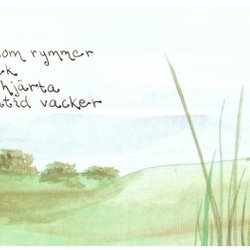 om rymmer
k
hjärta
tid vacker